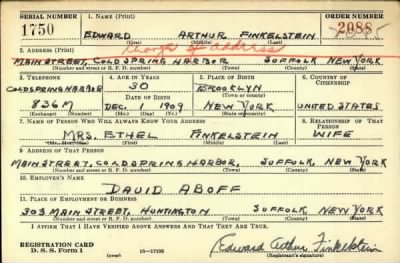 SERIAL NUMBER 1. NAME (Print) ORDER NUMBER
1750 EDWARD ARTHUR FINKELSTEIN 2088
(First) (Middle) (Last)
2. ADDRESS (Print) Change of address
MAIN STREET, COLD SPRING HARBOR SUFFOLK NEW YORK
(Number and street or R. F. D. number) (Town) (County) (State)
3. TELEPHONE 4. AGE IN YEARS 5. PLACE OF BIRTH 6. COUNTRY OF CITIZENSHIP
COLD SPRING HARBOR 30 BROOKLYN
DATE OF BIRTH (Town or county)
836M DEC. 1 1909 NEW YORK UNITED STATES
(Exchange) (Number) (Mo.) (Day) (Yr.) (State or country)
7. NAME OF PERSON WHO WILL ALWAYS KNOW YOUR ADDRESS 8. RELATIONSHIP OF THAT PERSON
MRS. ETHEL FINKELSTEIN WIFE
(Mr., Mrs., Miss) (First) (Middle) (Last)
9. ADDRESS OF THAT PERSON
MAIN STREET, COLD SPRING HARBOR, SUFFOLK, NEW YORK
(Number and street or R. F. D. number) (Town) (County) (State)
10. EMPLOYER'S NAME
DAVID ABOFF
11. PLACE OF EMPLOYMENT OR BUSINESS
303 MAIN STREET, HUNTINGTON SUFFOLK NEW YORK
(Number and street or R. F. D. number) (Town) (County) (State)
I AFFIRM THAT I HAVE VERIFIED ABOVE ANSWERS AND THAT THEY ARE TRUE.
REGISTRATION CARD
D. S. S. Form 1 (over) 16—17105 Edward Arthur Finkelstein
(Registrant's signature)